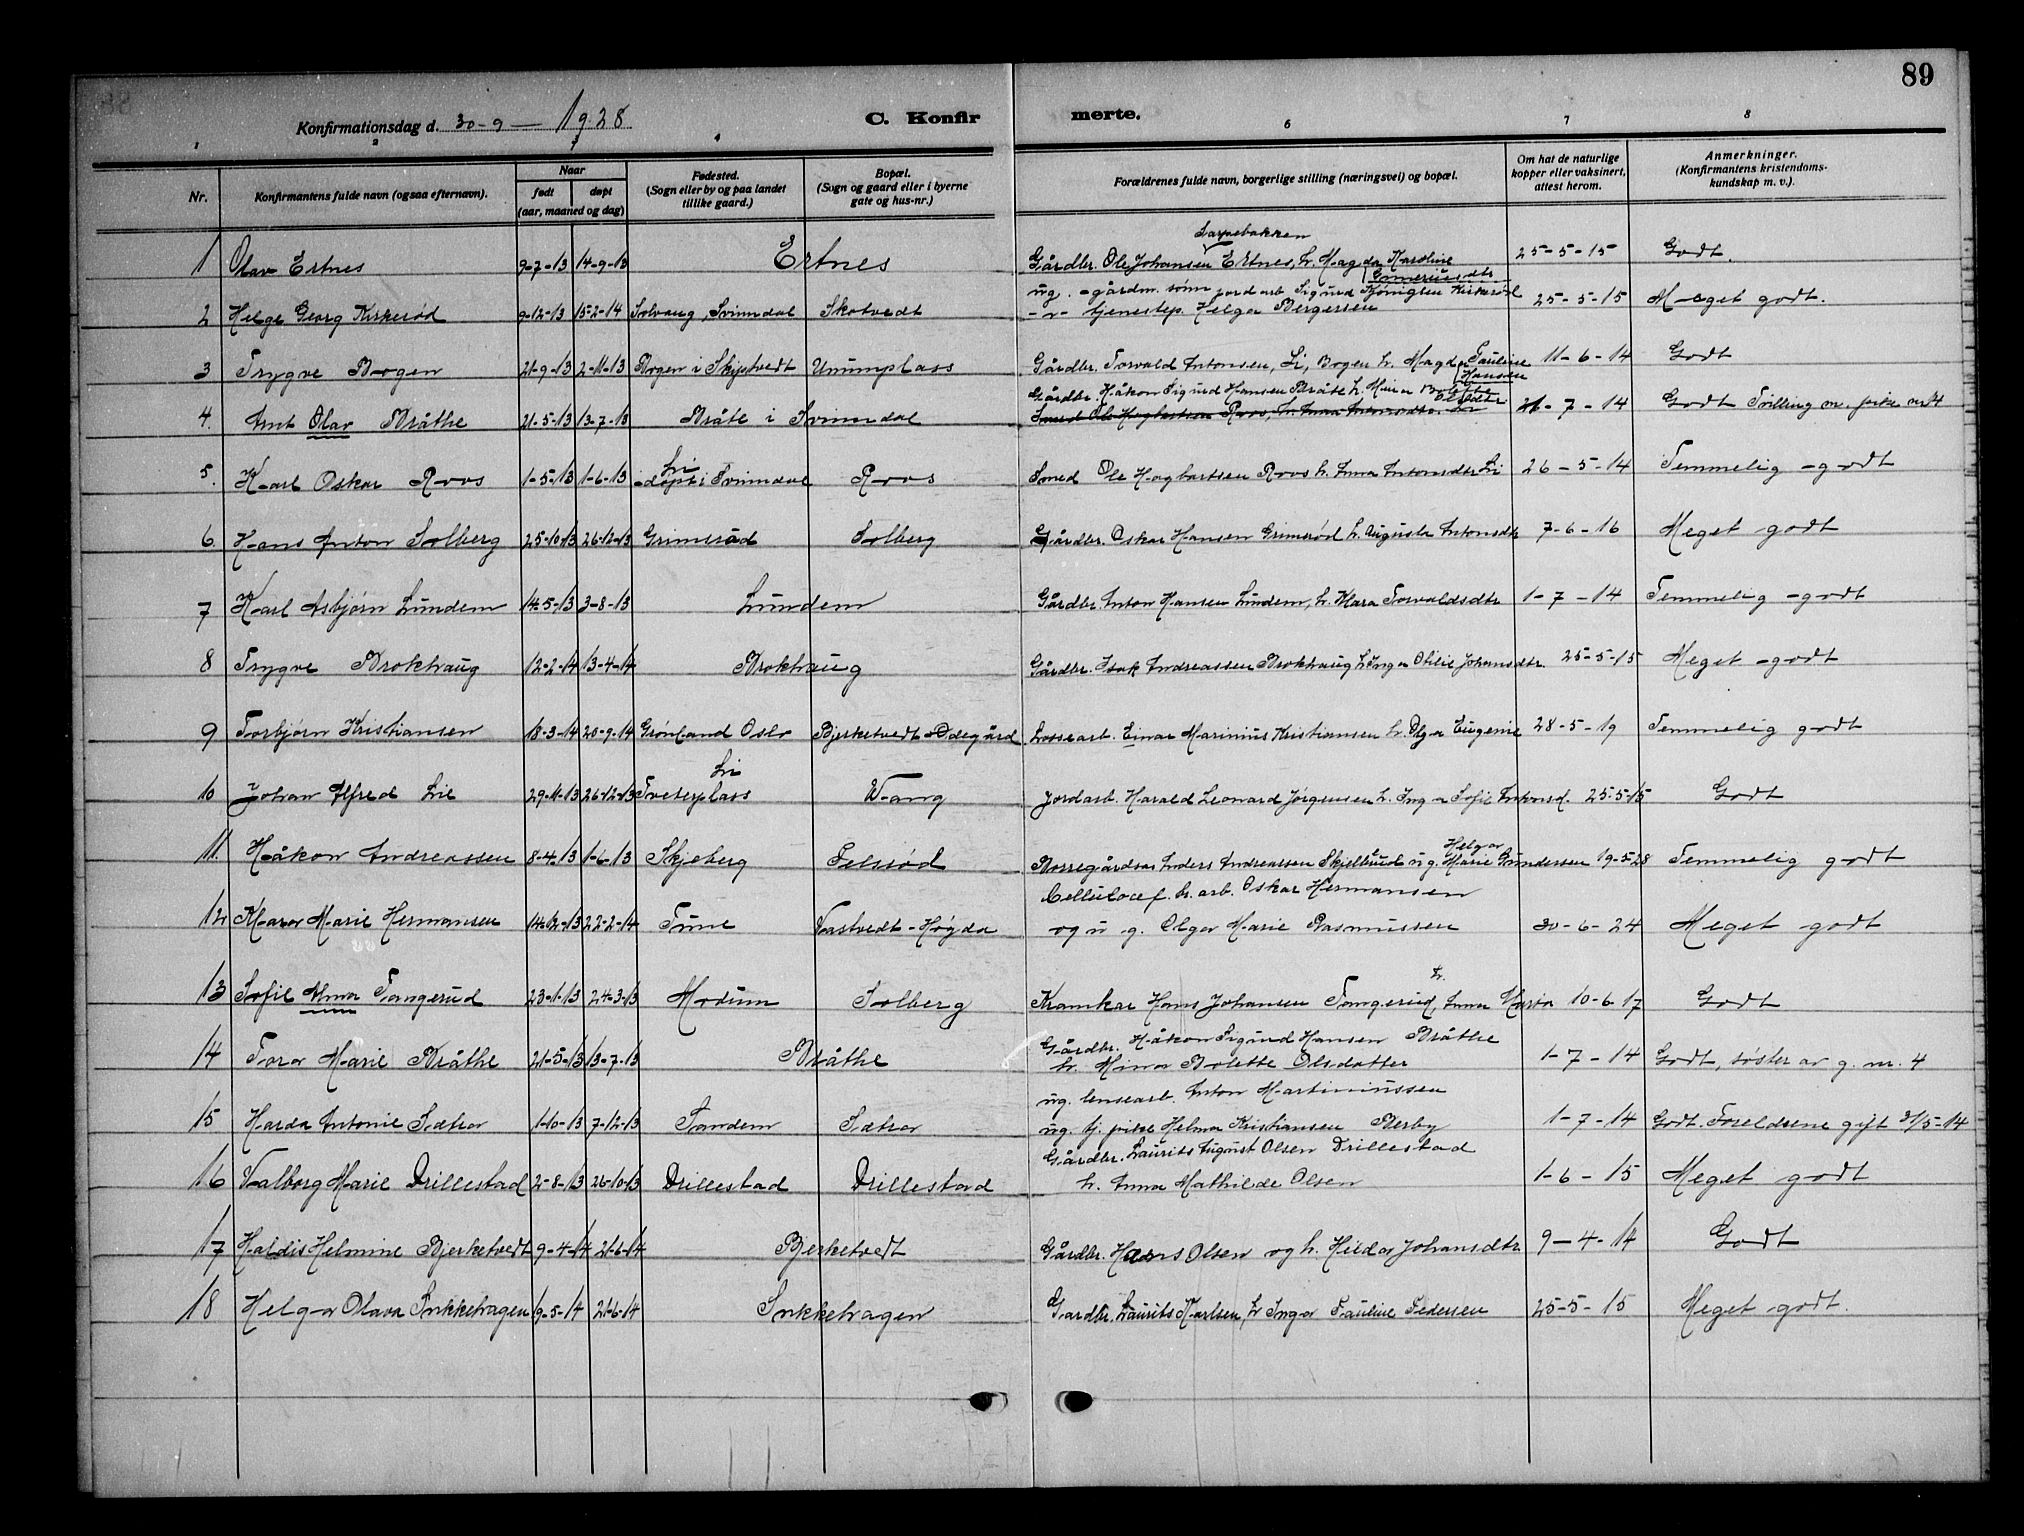 89
Konfirmationsdag d. 30-9- 1928
C. Konfir
merte.
1 2 3 4 6 7 8
Nr. Konfirmantens fulde navn (ogsaa efternavn). Naar født døpt (aar, maaned og dag) Fødested. (Sogn eller by og paa landet tillike gaard.) Bopæl. (Sogn og gaard eller i byerne gate og hus-nr.) Forældrenes fulde navn, borgerlige stilling (næringsvei) og bopæl. Om hat de naturlige kopper eller vaksinert, attest herom. Anmerkninger. (Konfirmantens kristendoms-kundskap m. v.).
1 Olav Ertnes 9-7-13 14-9-13 Ertnes Gårdbr. Ole Johansen Ertnes, h. Magda Karoline 25-5-15 Godt.
2 Helge Georg Kirkerød 9-12-13 15-2-14 Solvang, Svinndal Skotvedt ug. gårdm. sønn jordarb. Sigurd Kirkerød
-"- tjenestep. Helga Bergersen 25-5-15 Meget godt.
3 Trygve Bogen 21-9-13 2-11-13 Bogen i Skiptvedt Unumplass Gårdbr. Torvald Antonsen, Li, Bogen h. Magda Pauline Hansen 11-6-14 Godt
4. Arnt Olav Bråthe 21-5-13 13-7-13 Bråte i Svinndal Gårdbr. Håkon Sigurd Hansen Bråte h. Mina Bolette Olsdatter
Smed Ole Hagbartsen Roos, h. Anna Antonsdtr. Li 21-7-14 Godt Tvilling m. pike nr 14
5. Karl Oskar Roos 1-5-13 1-6-13 Li døpt i Svinndal Roos Smed Ole Hagbartsen Roos h. Anna Antonsdtr Li 26-5-14 Temmelig godt
6. Hans Anton Solberg 25-10-13 26-12-13 Grimsrød Solberg Gårdbr. Oskar Hansen Grimsrød h. Augusta Antonsdtr 7-6-16 Meget godt
7 Karl Asbjørn Lundem 14-5-13 3-8-13 Lundem Gårdbr. Anton Hansen Lundem, h. Klara Torvaldsdtr 1-7-14 Temmelig godt
8 Trygve Brokhaug 12-2-14 13-4-14 Brokhaug Gårdbr. Isak Andreassen Brokhaug h. Inga Otilie Johansdtr. 25-5-15 Meget godt
9 Torbjørn Kristiansen 18-3-14 20-9-14 Grønland Oslo Bjerketvedt Ødegård Lossearb. Einar Marinius Kristiansen h. Olga Eugenie 28-5-19 Temmelig godt
10 Johan Alfred Lie 29-11-13 26-12-13 Li Tveterplass Wang Jordarb. Harald Leonard Jørgensen h. Inga Sofie Antonsd. 25-5-15 Godt
11. Håkon Andreassen 8-4-13 1-6-13 Skjeberg Borregårdsar. Anders Andreassen Skjellerud ug. Helga Marie Gundersen 19-5-28 Temmelig godt
12 Klara Marie Hermansen 14-12-13 22-2-14 Tune Vastvedt-Høgda Cellulosef. b. arb. Oskar Hermansen
og u g. Olga Marie Rasmussen 30-6-24 Meget godt
13 Sofie Alma Tangerud 23-1-13 24-3-13 Modum Solberg Kramkar Hans Johansen Tangerud, h. Anna Maria 10-6-17 Godt
14 Tora Marie Bråthe 21-5-13 13-7-13 Bråthe Gårdbr. Håkon Sigurd Hansen Bråthe
h. Mina Bolette Olsdatter 1-7-14 Godt, søster av g. nr. 4
15 Harda Antonie Sætra 1-10-13 7-12-13 Sandem Sætra ug. lensearb. Anton Martiniussen
ug. tj. pike Helma Kristiansen Berby 1-7-14 Godt. Foreldrene gift 31/5-14
16 Valborg Marie Drillestad 2-8-13 26-10-13 Drillestad Drillestad Gårdbr. Laurits August Olsen Drillestad
h. Anna Mathilde Olsen 1-6-15 Meget godt
17 Haldis Helmine Bjerketvedt 9-4-14 21-6-14 Bjerketvedt Gårdbr. Hans Olsen og h. Hilda Johansdtr. 9-4-14 Godt
18 Helga Olava Snikkehagen 19-5-14 21-6-14 Snikkehagen Gardbr. Laurits Karlsen, h Inga Pauline Pedersen 25-5-15 Meget godt.